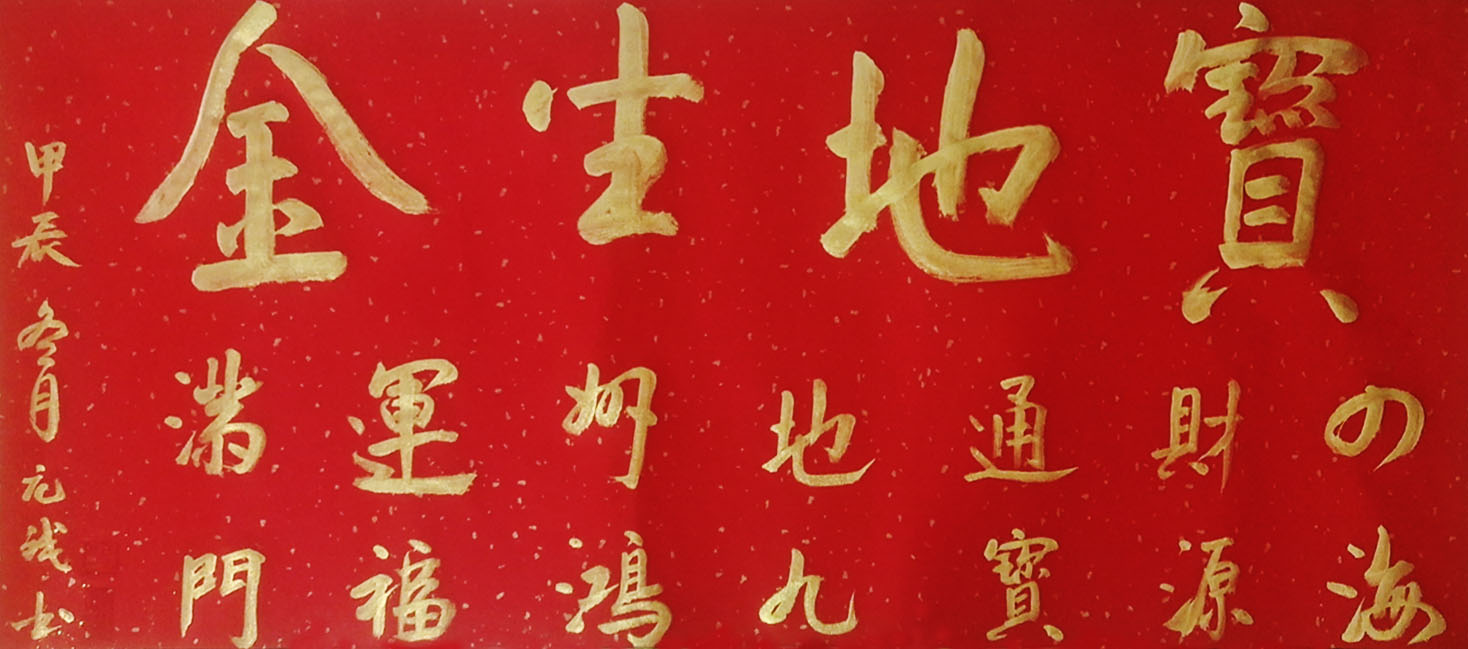 寶地生金
四海
財源
通寶
地九
州鴻
運福
滿門
甲辰冬月元书